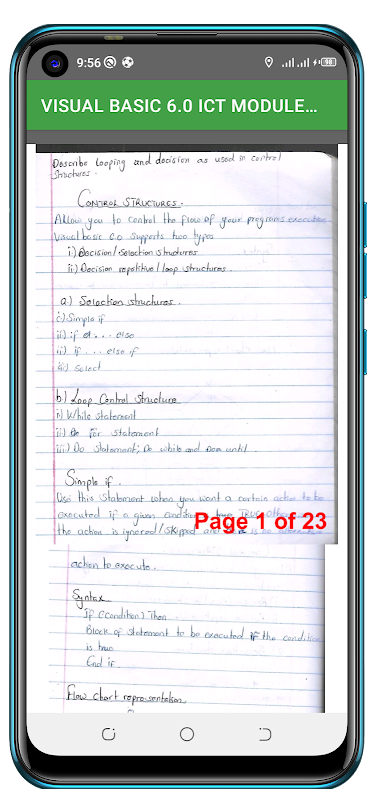 9:56
98
VISUAL BASIC 6.0 ICT MODULE...
Describe looping and decision as used in control
Structures.
CONTROL STRUCTURES.
Allow you to control the flow of your programs execution
Visual basic 6.0 supports two types
i) Decision/selection structures
ii) Decision repetitive/loop structures.
a.) Selection structures.
i) Simple if
ii) if ... else
iii) if ... else if
iv) select
b) Loop Control Structure
i) While statement
ii) For statement
iii) Do statement; Do while and Do until
Simple if.
Use this statement when you want a certain action to be
executed if a given condition TRUE
the action is ignored/skipped and
Page 1 of 23
action to execute.
Syntax
If (condition) Then
Block of statement to be executed if the condition
is true
End if
Flow chart representation